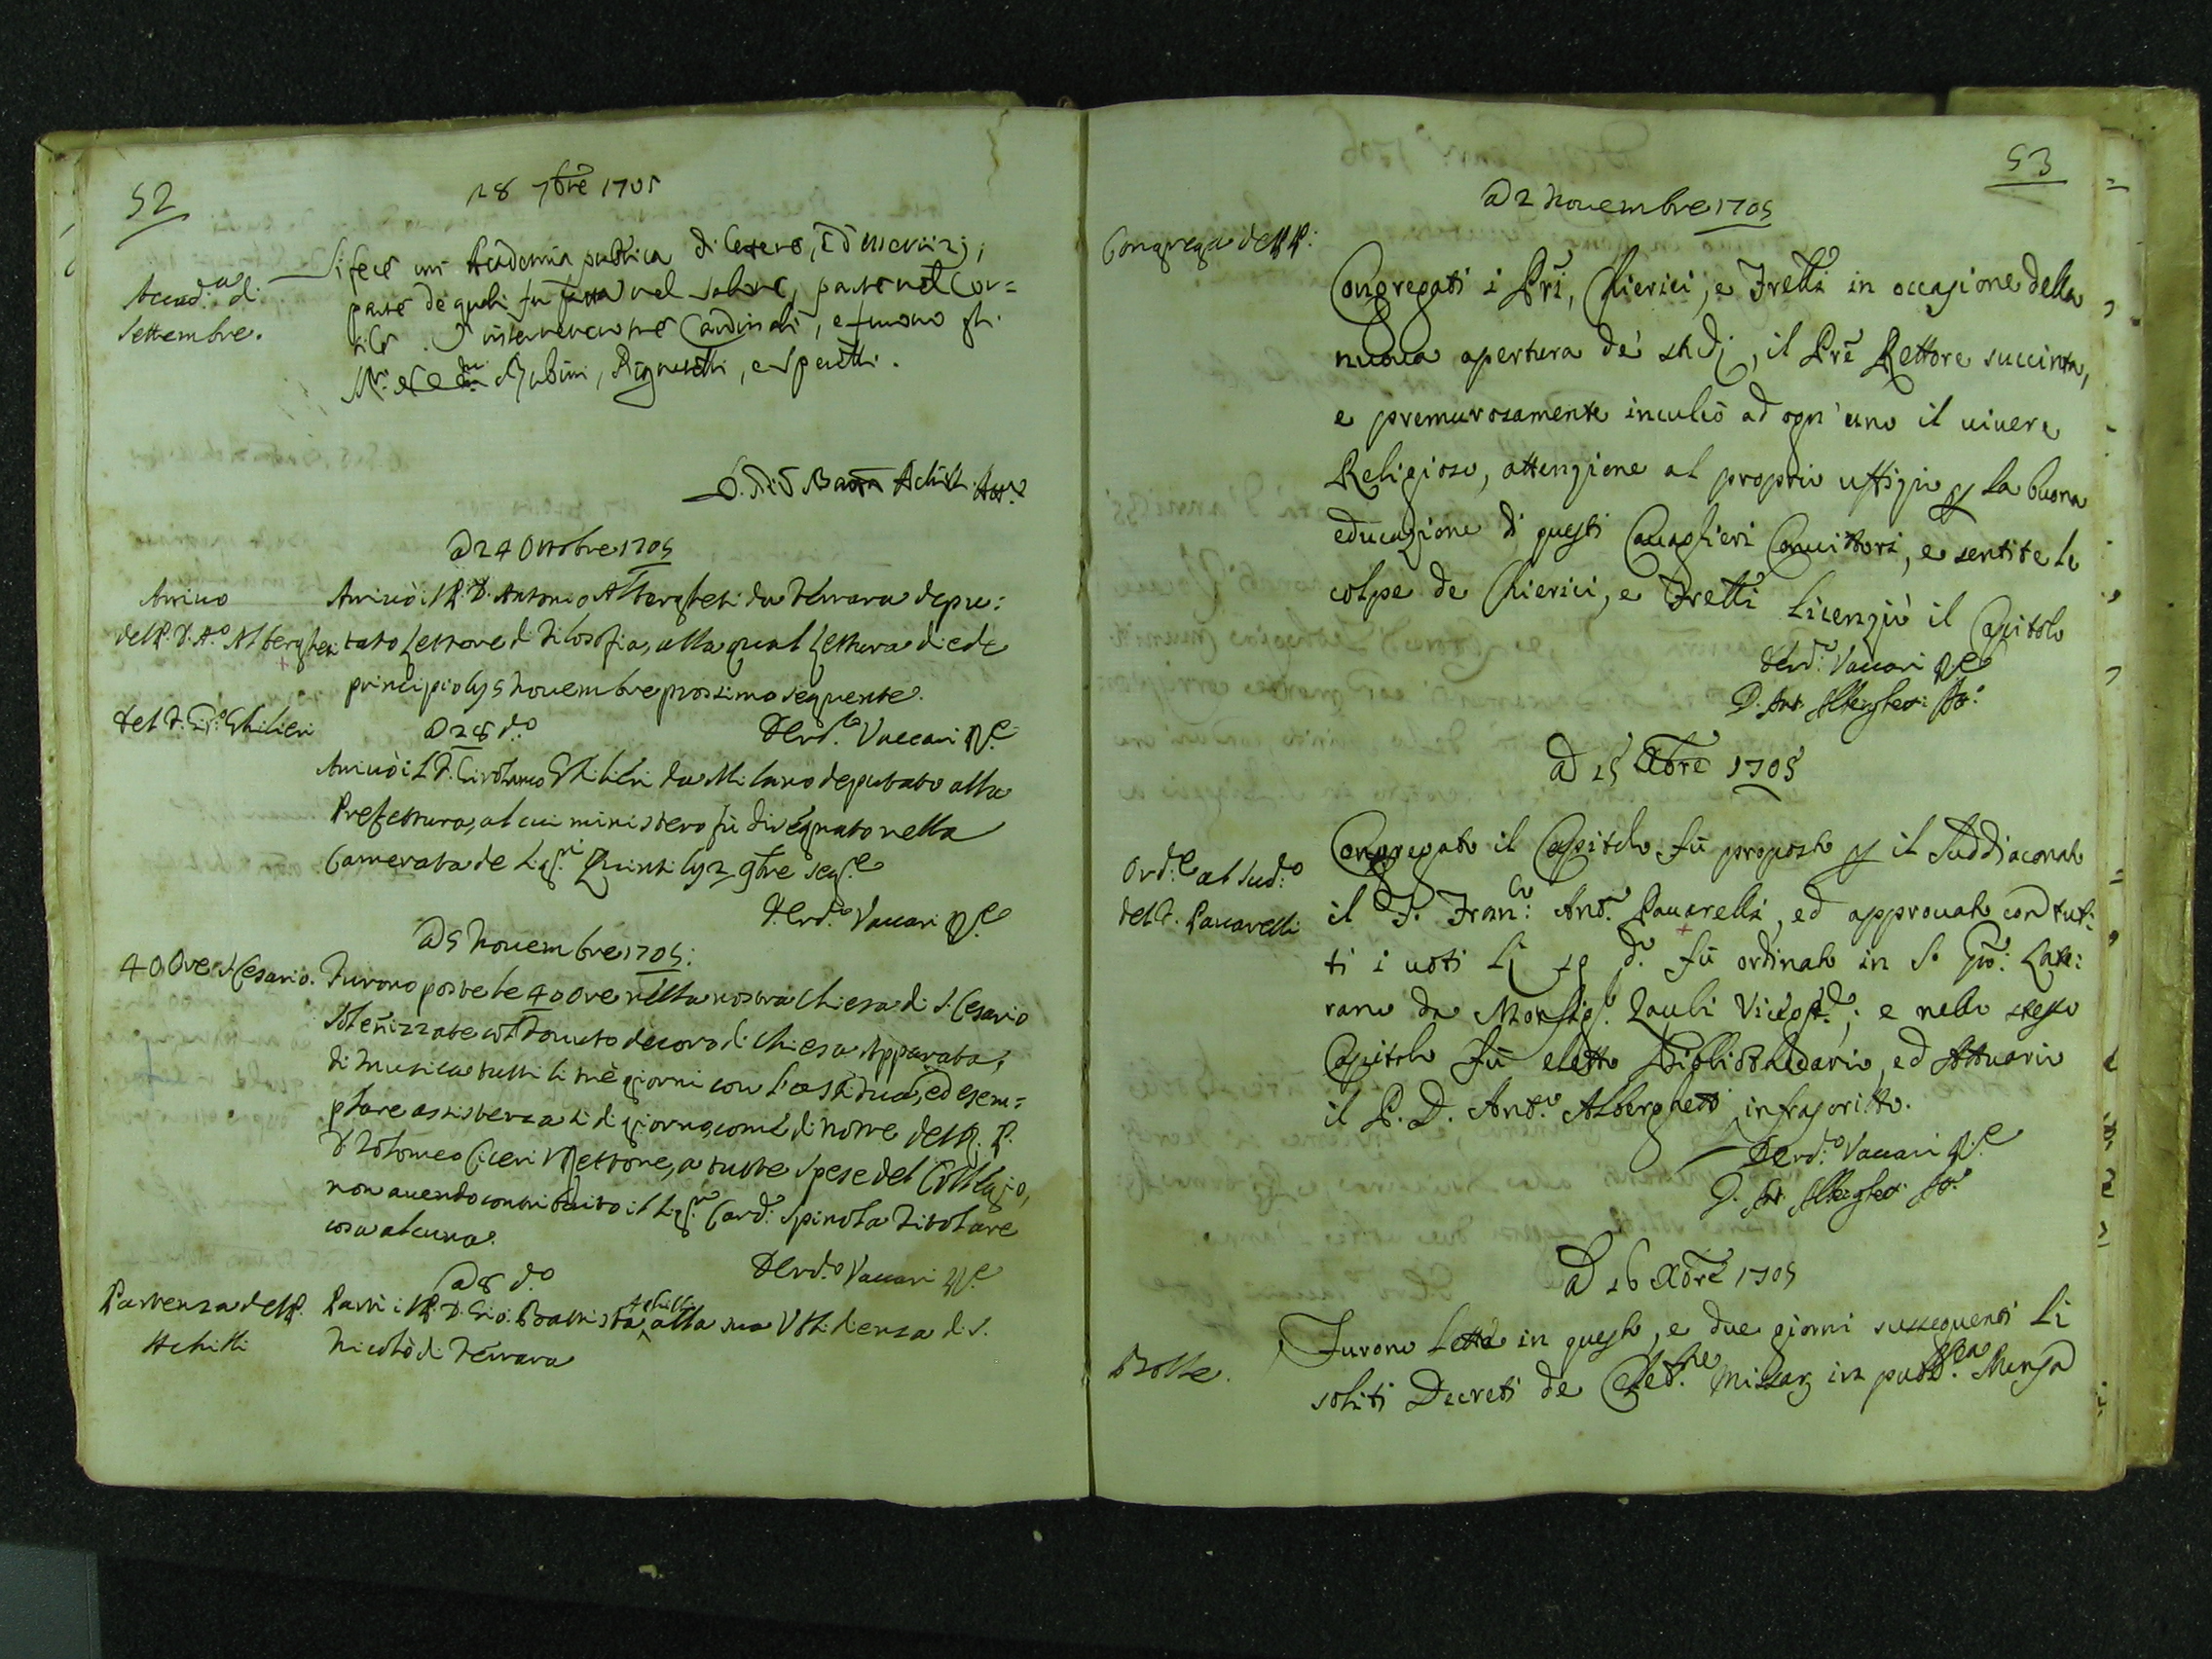 52
28 7bre 1705
Accad.a di
Settembre.
Si fece un' Academia publica di lettere, ed esercizij,
parte de quali fu fatta nel salone, parte nel Cor=
tile. V'intervennero tre Cardinali, e furono gli
Rubini, Pignatelli, e Sperelli.
D. Gio Batta Achilli Att.o
A 24 Ottobre 1705
Arrivo
del P. D. Ant.o Alberghetti
Arrivò il P. D. Antonio Alberghetti da Ferrara depu:
tato Lettore di Filosofia, alla qual Lettura diede
principio li 5 Novembre prossimo seguente.
Ferd.o Vaccari V.e
Del F. Gir.o Ghilieri
A 28 d.o
Arrivò il F. Girolamo Ghilieri da Milano deputato alla
Prefettura, al cui ministero fù disegnato nella
Camerata de Sig.ri Quinti li 2 9bre seg.e
Ferd.o Vaccari V.e
A 5 Novembre 1705:
40 Ore S. Cesario.
Furono poste le 40 ore nella nostra Chiesa di S. Cesario
solenizzate col dovuto decoro di Chiesa Apparata,
di musica tutti li trè giorni con l'assidua, ed esem=
plare assistenza sì di giorno, come di notte del R. P.
D. Tolomeo Ciceri Rettore, a tutte spese del Collegio,
non avendo contribuito il Sig.r Card. Spinola Titolare
cosa alcuna.
Ferd.o Vaccari V.e
A 8 d.o
Partenza del P.
Achilli
Partì il P. D. Gio: Battista Achilli alla sua Ubbidienza di S.
Nicolò di Ferrara
53
A 2 Novembre 1705
Congrega de PP:
Congregati i Pri, Chierici, e Frelli in occasione della
nuova apertura de' studj, il Pre Rettore succinta,
e premurosamente inculcò ad ogn'uno il vivere
Religioso, attenzione al proprio uffizio p la buona
educazione di questi Cavaglieri Convittori, e sentite le
colpe de Chierici, e Frelli licenziò il Capitolo
Ferd.o Vaccari V.e
D. Ant. Alberghetti Att.o
A 15 Xbre 1705
Ord.e al Sud.o
del F. Pavarelli
Congregato il Capitolo fù proposto p il Suddiaconato
il F. Fran.co Ant.o Pavarelli, ed approvato con tut:
ti i voti li 19 d.o fù ordinato in S. Gio: Late:
rano da Monsig.r Zauli Viceg.te; e nello stesso
Capitolo fù eletto Bibliothecario, ed Attuario
il P. D. Ant.o Alberghetti infrascritto.
Ferd.o Vaccari V.e
D. Ant. Alberghetti Att.o
A 16 Xbre 1705
Bolle.
Furono lette in questo, e due giorni susseguenti li
soliti Decreti de Celeb.ne Missar in pub.ca Mensa